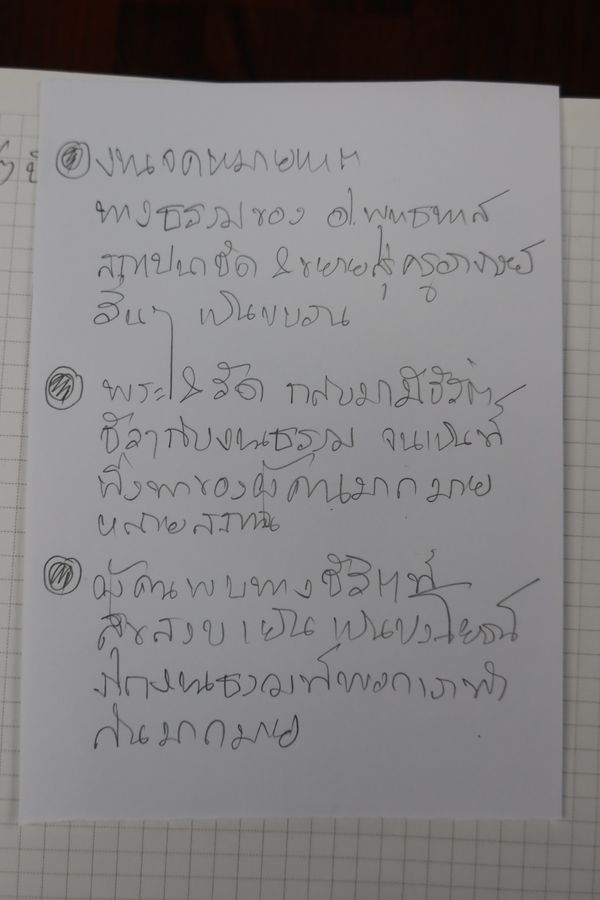 งานจดหมายเหตุ
ทางธรรมของ อ.พุทธทาส
สถาปนาชัด & ขยายสู่ครูอาจารย์
อื่นๆ เป็นขบวน
พระ & วัด กลับมามีชีวิต
ชีวากับงานธรรม จนเป็นที่
พึ่งพาของผู้คนมากมาย
หลายสถาน
ผู้คนพบทางชีวิตที่
สุขสงบเย็น เป็นประโยชน์
งานธรรมที่พวกเราทำ
กันมากมาย